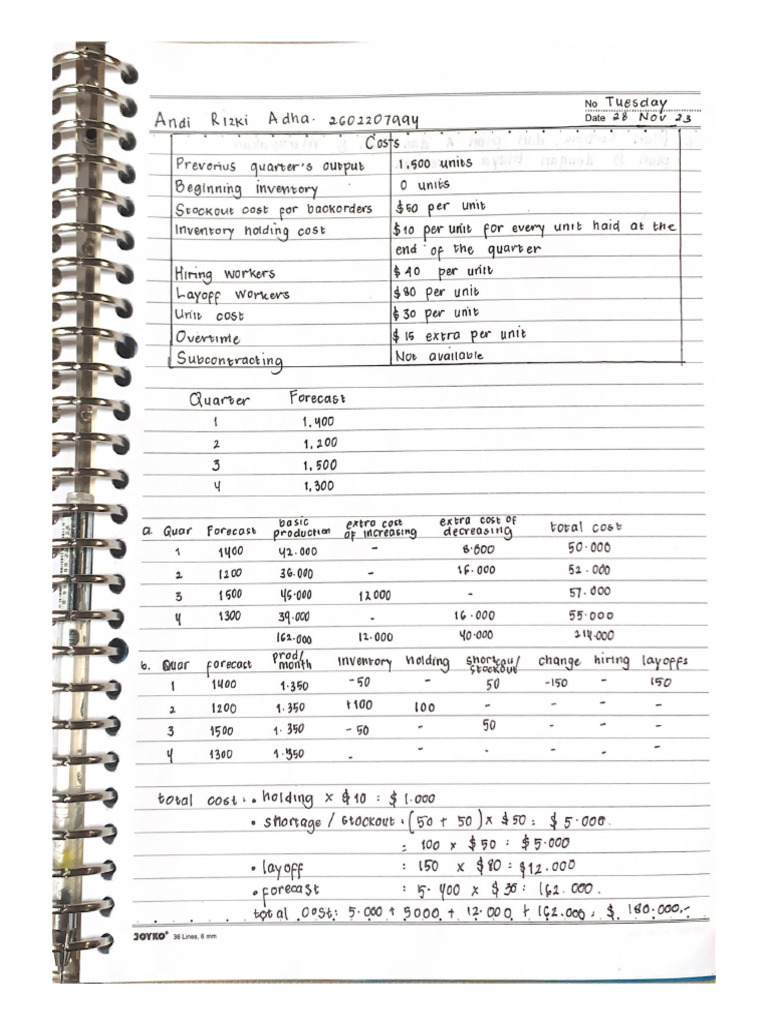 No Tuesday
Andi Rizki Adha. 2602207994 Date 28 Nov 23
Costs
Prevorius quarter's output 1,500 units
Beginning inventory 0 units
Stockout cost for backorders $50 per unit
Inventory holding cost $10 per unit for every unit haid at the
end of the quarter
Hiring workers $40 per unit
Layoff workers $80 per unit
Unit cost $30 per unit
Overtime $15 extra per unit
Subcontracting Not available
Quarter Forecast
1 1,400
2 1,200
3 1,500
4 1,300
a. Quar Forecast basic production extra cost of increasing extra cost of decreasing total cost
1 1400 42.000 - 8.000 50.000
2 1200 36.000 - 16.000 52.000
3 1500 45.000 12000 - 57.000
4 1300 39.000 - 16.000 55.000
162.000 12.000 40.000 214.000
b. Quar forecast prod/month inventory holding shortcau/stockout change hiring layoffs
1 1400 1.350 -50 - 50 -150 - 150
2 1200 1.350 +100 100 - - - -
3 1500 1.350 -50 - 50 - - -
4 1300 1.350 - - - - - -
total cost: • holding x $10 : $1.000
• shortage / stockout : (50 + 50) x $50 : $5.000.
= 100 x $50 : $5.000
• layoff : 150 x $80 : $12.000
• forecast : 5.400 x $30 : 162.000.
total cost: 5.000 + 5000 + 12.000 + 162.000 : $ 180.000,-
JOYKO 36 Lines, 6 mm